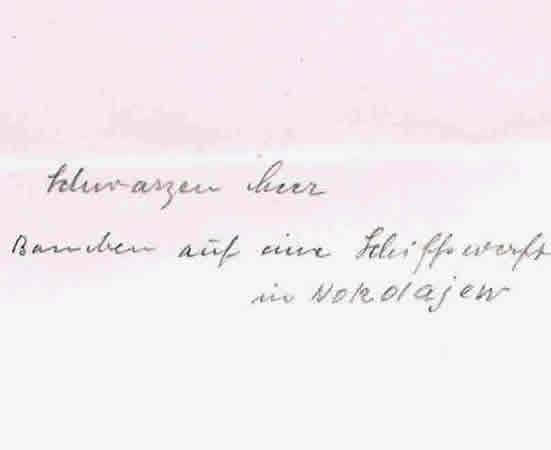 Schwarzen Meer
Bomben auf eine Schiffswerft
in Nokolajew